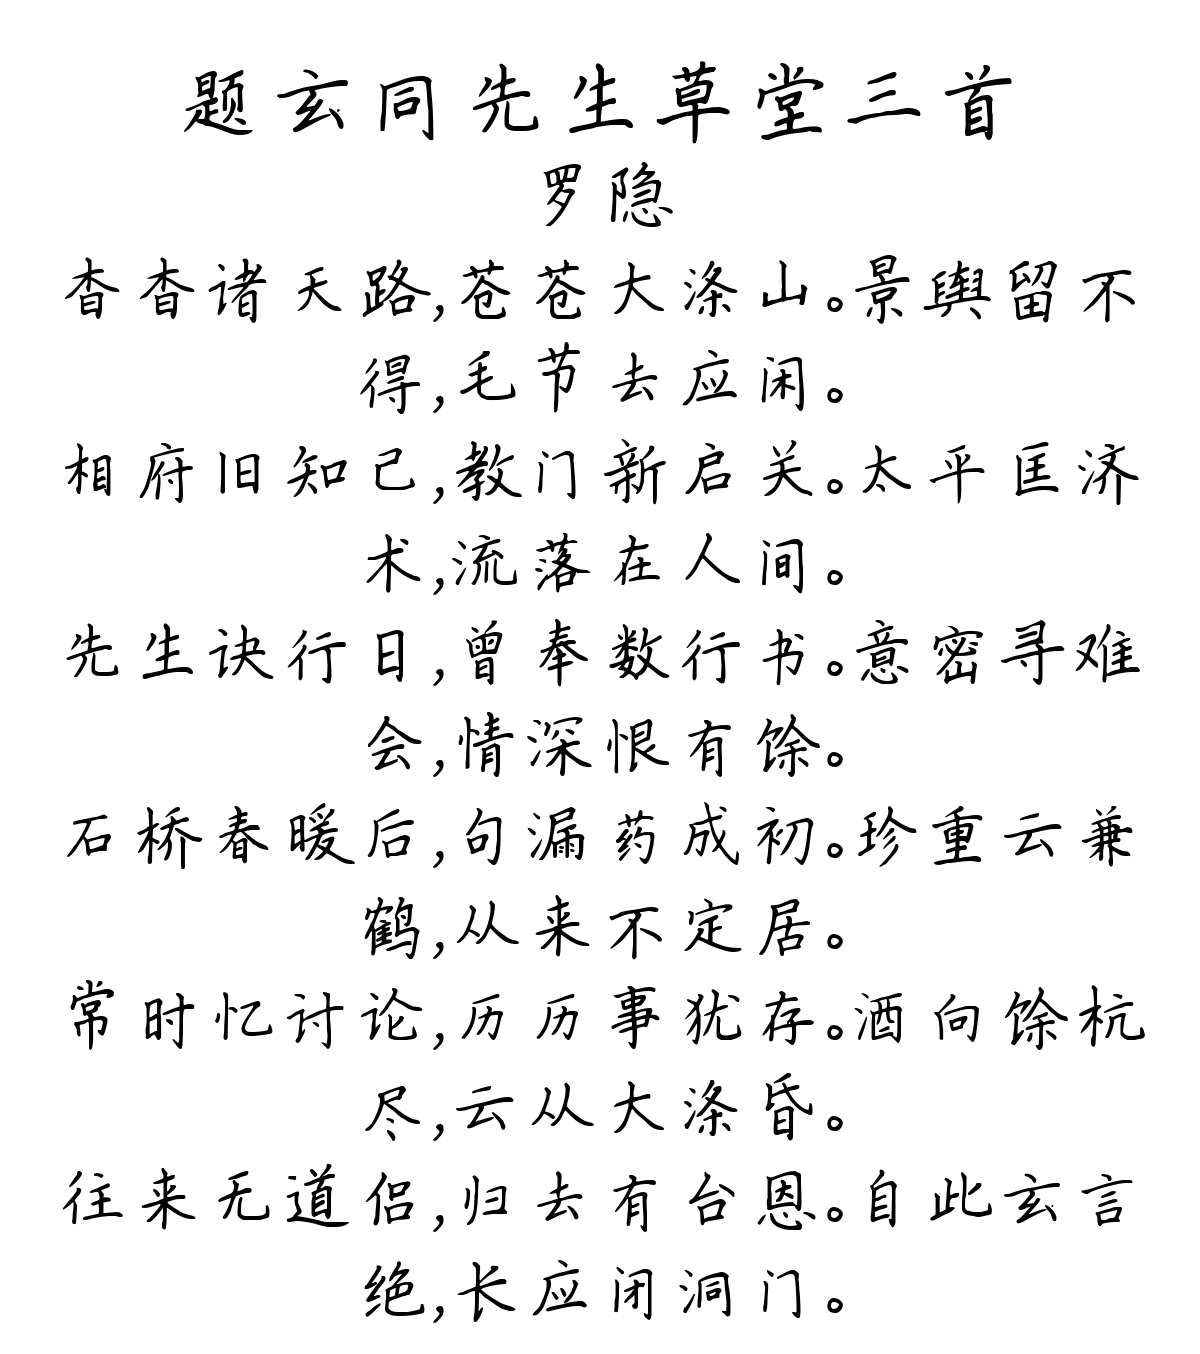 题玄同先生草堂三首
罗隐
杳杳诸天路,苍苍大涤山。景舆留不
得,毛节去应闲。
相府旧知己,教门新启关。太平匡济
术,流落在人间。
先生诀行日,曾奉数行书。意密寻难
会,情深恨有馀。
石桥春暖后,句漏药成初。珍重云兼
鹤,从来不定居。
常时忆讨论,历历事犹存。酒向馀杭
尽,云从大涤昏。
往来无道侣,归去有台恩。自此玄言
绝,长应闭洞门。